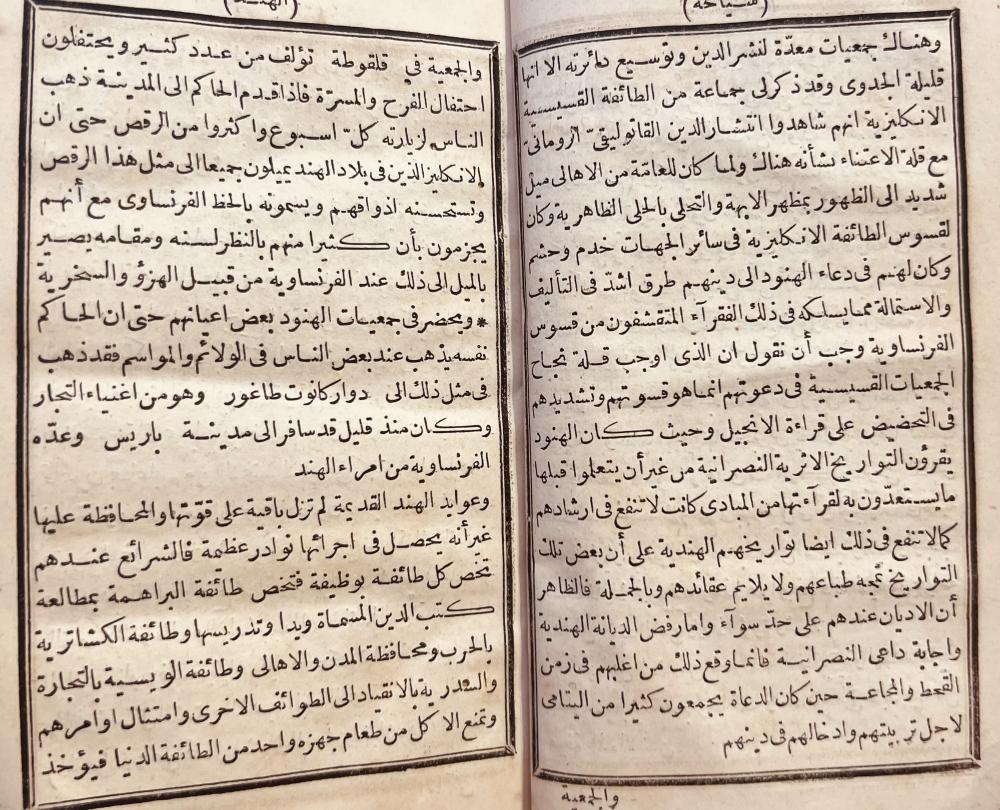 (سياحة)
وهناك جمعيات معدّة لنشر الدين وتوسيع دائرته الا انها
قليلة الجدوى وقد ذكر لى جماعة من الطائفة القسيسية
الانكليزية انهم شاهدوا انتشار الدين القاتوليقىّ الرومانىّ
مع قلة الاعتناء بشأنه هناك ولما كان للعامّة من الاهالى ميل
شديد الى الظهور بمظهر الابهة والتحلى بالحلى الظاهرية وكان
لقسوس الطائفة الانكليزية فى سائر الجهات خدم وحشم
وكان لهم فى دعاء الهنود الى دينهم طرق اشدّ فى التأليف
والاستمالة مما يسلكه فى ذلك الفقرآء المتقشفون من قسوس
الفرنساوية وجب أن نقول ان الذى اوجب قلة نجاح
الجمعيات القسيسية فى دعوتهم انما هو قسوتهم وتشديدهم
فى التحضيض على قراءة الانجيل وحيث كان الهنود
يقرؤن التواريخ الاثرية النصرانية من غير أن يتعلموا قبلها
ما يستعدّون به لقرآءتها من المبادى كانت لا تنفع فى ارشادهم
كما لا تنفع فى ذلك ايضا تواريخهم الهندية على أن بعض تلك
التواريخ تمجه طباعهم ولا يلايم عقائدهم وبالجملة فالظاهر
أن الاديان عندهم على حدّ سوآء واما رفض الديانة الهندية
واجابة داعى النصرانية فانما وقع ذلك من اغلبهم فى زمن
القحط والمجاعة حين كان الدعاة يجمعون كثيرا من اليتامى
لاجل تربيتهم وادخالهم فى دينهم
والجمعية
(الهند)
والجمعية في قلقوطة تؤلف من عدد كثير ويحتفلون
احتفال الفرح والمسرّة فاذا قدم الحاكم الى المدينة ذهب
الناس لزيارته كلّ اسبوع واكثروا من الرقص حتى ان
الانكليز الذين فى بلاد الهند يميلون جميعا الى مثل هذا الرقص
وتستحسنه اذواقهم ويسمونه بالحظ الفرنساوى مع أنهم
يجزمون بأن كثيرا منهم بالنظر لسنه ومقامه يصير
بالميل الى ذلك عند الفرنساوية من قبيل الهزؤ والسخرية
* ويحضر فى جمعيات الهنود بعض اعيانهم حتى ان الحاكم
نفسه يذهب عند بعض الناس فى الولائم والمواسم فقد ذهب
فى مثل ذلك الى دواركانوت طاغور وهو من اغنياء التجار
وكان منذ قليل قد سافر الى مدينة باريس وعدّه
الفرنساوية من امراء الهند
وعوايد الهند القديمة لم تزل باقية على قوّتها والمحافظة عليها
غير أنه يحصل فى اجرائها نوادر عظيمة فالشرائع عندهم
تخص كل طائفة بوظيفة فتخص طائفة البراهمة بمطالعة
كتب الدين المسماة ويدا وتدريسها وطائفة الكشاترية
بالحرب ومحافظة المدن والاهالى وطائفة الويسية بالتجارة
والسدرية بالانقياد الى الطوائف الاخرى وامتثال اوامرهم
وتمنع الاكل من طعام جهزه واحد من الطائفة الدنيا فيؤخذ